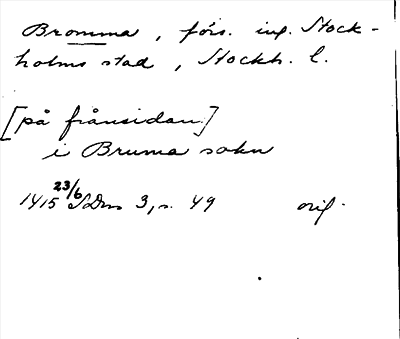 Bromma, förs. ing. Stock-
holms stad, Stockh. l.
[på frånsidan]
i Bruma sokn
1415 23/6 SDns 3, s. 49 orig.